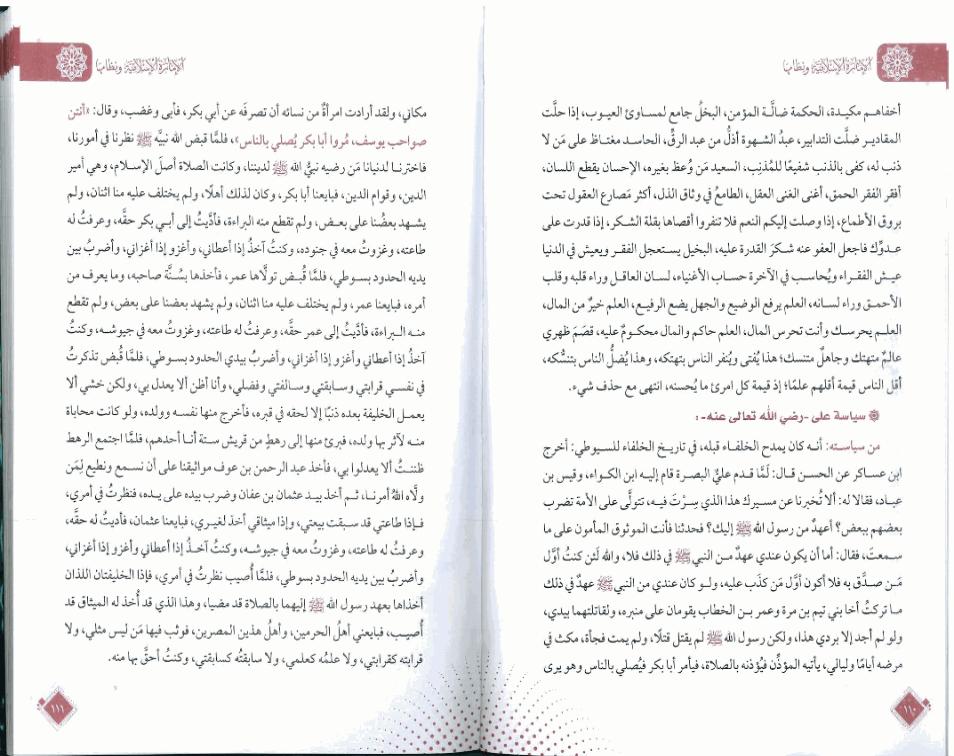 الإمارة الإسلامية ونظامها
أخفاهم مكيدة، الحكمة ضالّة المؤمن، البخلُ جامع لمساوئ العيوب، إذا حلَّت
المقادير ضلَّت التدابير، عبدُ الشهوة أذلُّ من عبد الرقِّ، الحاسد مغتاظ على مَن لا
ذنب له، كفى بالذنب شفيعًا للمُذنِب، السعيد مَن وُعظ بغيره، الإحسان يقطع اللسان،
أفقر الفقر الحمق، أغنى الغنى العقل، الطامعُ في وثاق الذل، أكثر مَصارع العقول تحت
بروق الأطماع، إذا وصلت إليكم النعم فلا تنفروا أقصاها بقلة الشكر، إذا قدرت على
عدوِّك فاجعل العفو عنه شكرَ القدرة عليه، البخيل يستعجل الفقر ويعيش في الدنيا
عيش الفقراء ويُحاسب في الآخرة حساب الأغنياء، لسان العاقل وراء قلبه وقلب
الأحمق وراء لسانه، العلم يرفع الوضيع والجهل يضع الرفيع، العلم خيرٌ من المال،
العلم يحرسك وأنت تحرس المال، العلم حاكم والمال محكومٌ عليه، قصَمَ ظهري
عالمٌ متهتك وجاهلٌ متنسك؛ هذا يُفتي ويُنفر الناس بتهتكه، وهذا يُضلُّ الناس بتنسُّكه،
أقل الناس قيمة أقلهم علمًا؛ إذ قيمة كل امرئ ما يُحسنه، انتهى مع حذف شيء.
سياسة علي -رضي الله تعالى عنه- :
من سياسته: أنه كان يمدح الخلفاء قبله، في تاريخ الخلفاء للسيوطي: أخرج
ابن عساكر عن الحسن قال: لَمَّا قدم عليٌّ البصرة قام إليه ابن الكواء، وقيس بن
عباد، فقالا له: ألا تُخبرنا عن مسيرك هذا الذي سِرْتَ فيه، تتولَّى على الأمة تضرب
بعضهم ببعض؟ أعهدٌ من رسول الله ﷺ إليك؟ فحدثنا فأنت الموثوق المأمون على ما
سمعتَ، فقال: أما أن يكون عندي عهدٌ من النبي ﷺ في ذلك فلا، والله لئن كنتُ أوَّل
مَن صدَّق به فلا أكون أوَّل مَن كذَب عليه، ولو كان عندي من النبي ﷺ عهدٌ في ذلك
ما تركتُ أخا بني تيم بن مرة وعمر بن الخطاب يقومان على منبره، ولقاتلتهما بيدي،
ولو لم أجد إلا بردي هذا، ولكن رسول الله ﷺ لم يقتل قتلًا، ولم يمت فجأة، مكث في
مرضه أيامًا وليالي، يأتيه المؤذِّن فيُؤذنه بالصلاة، فيأمر أبا بكر فيُصلي بالناس وهو يرى
١١٠
الإمارة الإسلامية ونظامها
مكاني، ولقد أرادت امرأةٌ من نسائه أن تصرفَه عن أبي بكر، فأبى وغضب، وقال: «أنتن
صواحب يوسف، مُروا أبا بكر يُصلي بالناس»، فلمَّا قبض الله نبيَّه ﷺ نظرنا في أمورنا،
فاخترنا لدنيانا مَن رضيه نبيُّ الله ﷺ لديننا، وكانت الصلاة أصلَ الإسلام، وهي أمير
الدين، وقوام الدين، فبايعنا أبا بكر، وكان لذلك أهلًا، ولم يختلف عليه منا اثنان، ولم
يشهد بعضُنا على بعض، ولم تقطع منه البراءة، فأدَّيتُ إلى أبي بكر حقَّه، وعرفتُ له
طاعته، وغزوتُ معه في جنوده، وكنتُ آخذُ إذا أعطاني، وأغزو إذا أغزاني، وأضربُ بين
يديه الحدود بسوطي، فلمَّا قُبض تولَّاها عمر، فأخذها بسُنَّة صاحبه، وما يعرف من
أمره، فبايعنا عمر، ولم يختلف عليه منا اثنان، ولم يشهد بعضنا على بعض، ولم تقطع
منه البراءة، فأدَّيتُ إلى عمر حقَّه، وعرفتُ له طاعته، وغزوتُ معه في جيوشه، وكنتُ
آخذُ إذا أعطاني وأغزو إذا أغزاني، وأضربُ بيدي الحدود بسوطي، فلمَّا قُبض تذكرتُ
في نفسي قرابتي وسابقتي وسالفتي وفضلي، وأنا أظن ألا يعدل بي، ولكن خشي ألا
يعمل الخليفة بعده ذنبًا إلا لحقه في قبره، فأخرج منها نفسه وولده، ولو كانت محاباة
منه لآثر بها ولده، فبرئ منها إلى رهطٍ من قريش ستة أنا أحدهم، فلمَّا اجتمع الرهط
ظننتُ ألا يعدلوا بي، فأخذ عبد الرحمن بن عوف مواثيقنا على أن نسمع ونطيع لِمَن
ولاه اللهُ أمرنا، ثم أخذ بيد عثمان بن عفان وضرب بيده على يده، فنظرتُ في أمري،
فإذا طاعتي قد سبقت بيعتي، وإذا ميثاقي أخذ لغيري، فبايعنا عثمان، فأديتُ له حقَّه،
وعرفتُ له طاعته، وغزوتُ معه في جيوشه، وكنتُ آخذُ إذا أعطاني وأغزو إذا أغزاني،
وأضربُ بين يديه الحدود بسوطي، فلمَّا أُصيب نظرتُ في أمري، فإذا الخليفتان اللذان
أخذاها بعهد رسول الله ﷺ إليهما بالصلاة قد مضيا، وهذا الذي قد أُخذ له الميثاق قد
أُصيب، فبايعني أهلُ الحرمين، وأهلُ هذين المصرين، فوثب فيها مَن ليس مثلي، ولا
قرابته كقرابتي، ولا علمُه كعلمي، ولا سابقتُه كسابقتي، وكنتُ أحقَّ بها منه.
١١١